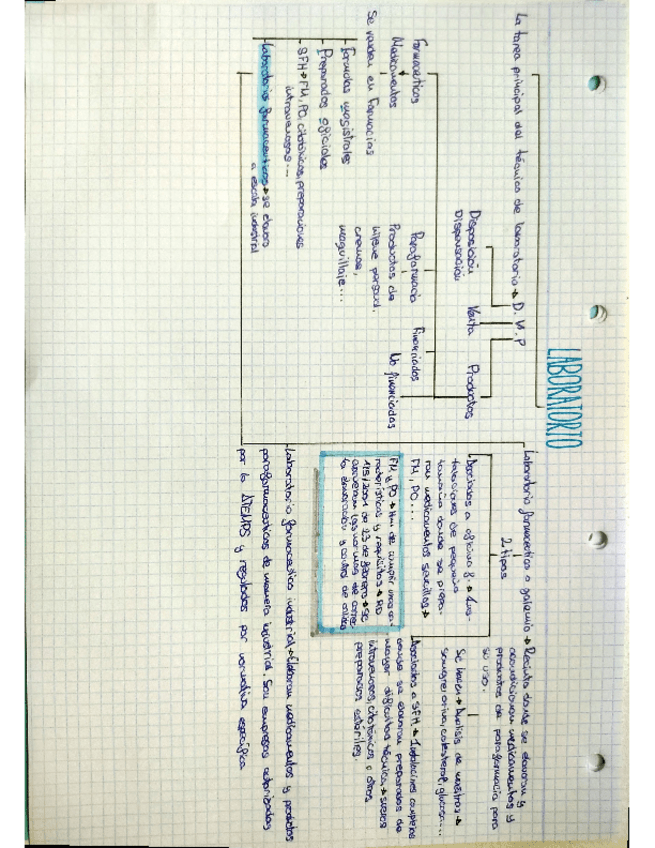 LABORATORIO
La tarea principal del técnico de laboratorio → D. V. P
Disposición
Dispensación
Venta
Productos
Farmaceúticos
Medicamentos
Se venden en Farmacias
Formulas magistrales
Preparados oficiales
SFH → FM, PO, citotóxicos, preparaciones
intravenosas...
Laboratorios farmaceuticos → se elabora
a escala industrial
Parafarmacia
Productos de
higiene personal,
cremas,
maquillaje...
Financiados
No financiados
Laboratorio farmaceutico o galénico → Recinto donde se elaboran y
acondicionan medicamentos y
productos de parafarmacia para
su uso.
Se hacen → Análisis de muestras →
sangre, orina, colesterol, glucosa....
2 tipos
Asociados a oficina F. → Ins-
talaciones de pequeño
tamaño donde se prepa-
ran medicamentos sencillos →
FM, PO...
FM y PO → Han de cumplir unas ca-
racterísticas y requisitos → RD
175/2001 de 23 de Febrero → Se
aprueban las normas de correc-
ta elaboración y control de calidad
Asociados a SFH → Instalaciones complejas
donde se elaboran preparados de
mayor dificultad técnica → sueros
intravenosos, citotóxicos o otros
preparados estériles.
Laboratorio farmaceutico industrial → Elaboran medicamentos y productos
parafarmaceuticos de manera industrial. Son empresas autorizadas
por la AEMPS y reguladas por normativa específica